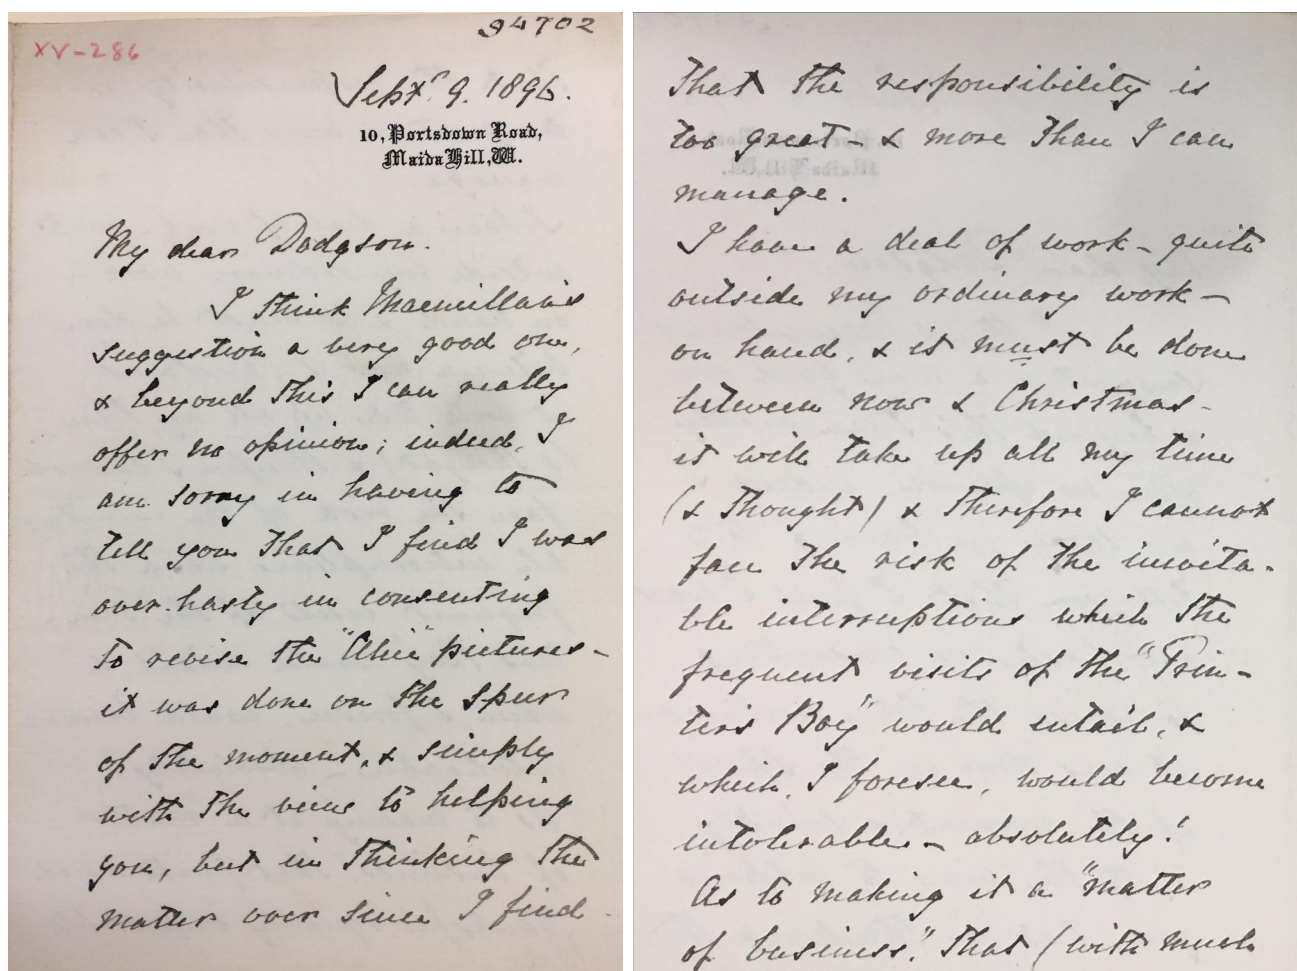 94702
XV-286
Septr. 9. 1896.
10, Portsdown Road,
Maida Hill, W.
My dear Dodgson.
I think Macmillan's
suggestion a very good one,
& beyond this I can really
offer no opinion; indeed, I
am sorry in having to
tell you that I find I was
over-hasty in consenting
to revise the "Alice" pictures –
it was done on the spur
of the moment, & simply
with the view to helping
you, but in thinking the
matter over since I find
that the responsibility is
too great – & more than I can
manage.
I have a deal of work – quite
outside my ordinary work –
on hand, & it must be done
between now & Christmas –
it will take up all my time
(& thought) & therefore I cannot
face the risk of the inevita-
ble interruptions which the
frequent visits of the "Prin-
ter's Boy" would entail, &
which, I foresee, would become
intolerable – absolutely!
As to making it a "matter
of business," that (with much